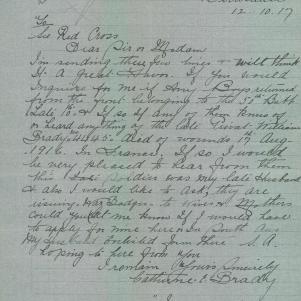 12.10.17
To
The Red Cross
Dear Sir or Madam
I'm sending these few lines & will think
it a great favor. If you would
Inquire for me if any Boys returned
from the front belonging to the 51st Batt
Late 10. & if so If any of them knows
or heard anything of the late Privat William
Brady died of wounds 17 Aug
1916. In France. If so I would
be very pleased to hear from them
this Soldier was my late Husband
& also I would like to ask, they are
issuing War Badges to Wives & Mothers
Could you let me know if I would have
to apply for mine here or In South Aus
My Husband Enlisted from there S.A.
hoping to here from you
I remain Yours Sincerely
Catherine E Brady